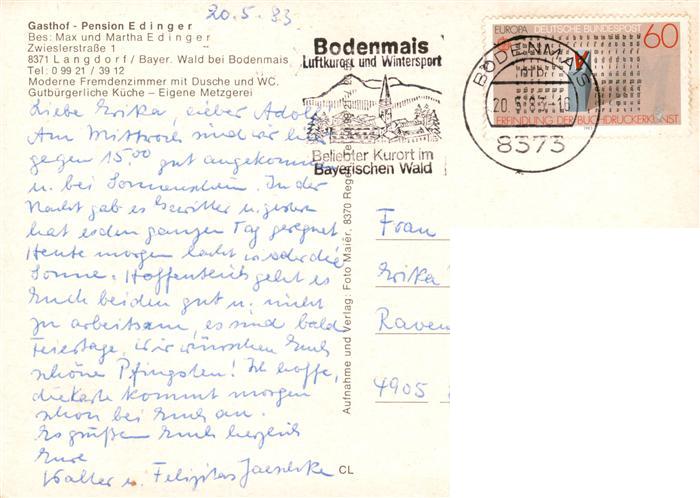 20.5.83
Gasthof - Pension Edinger
Bes: Max und Martha Edinger
Zwieslerstraße 1
8371 Langdorf/Bayer. Wald bei Bodenmais
Tel: 0 99 21 / 39 12
Moderne Fremdenzimmer mit Dusche und WC.
Gutbürgerliche Küche – Eigene Metzgerei
Liebe Erika, lieber Adolf!
Am Mittwoch sind wir hier
gegen 15.00 gut angekommen
u. bei Sonnenschein. In der
Nacht gab es Gewitter u. gestern
hat es den ganzen Tag geregnet
Heute morgen lacht wieder die
Sonne. Hoffentlich geht es
Euch beiden gut u. nicht
zu arbeitsam, es sind bald
Feiertage. Wir wünschen Euch
schöne Pfingsten! Ich hoffe,
die Karte kommt morgen
schon bei Euch an.
Es grüßen Euch herzlich
Eure
Walter u. Felizitas Jaeschke
Bodenmais
Luftkurort und Wintersport
Beliebter Kurort im
Bayerischen Wald
EUROPA DEUTSCHE BUNDESPOST 60
ERFINDUNG DER BUCHDRUCKERKUNST
BODENMAIS
20.5.83-16
8373
Aufnahme und Verlag: Foto Maier, 8370 Regen
CL
Frau
Erika
Raven
4905